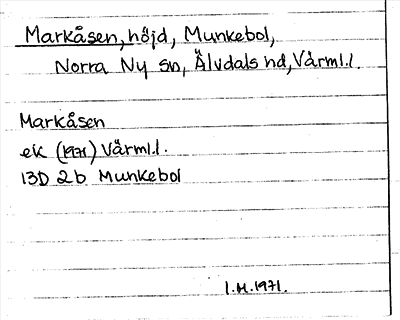 Markåsen, höjd, Munkebol,
Norra Ny sn, Älvdals hd, Värml.l.
Markåsen
ek (1971) Värml.l.
13D 2b Munkebol
I.H. 1971.